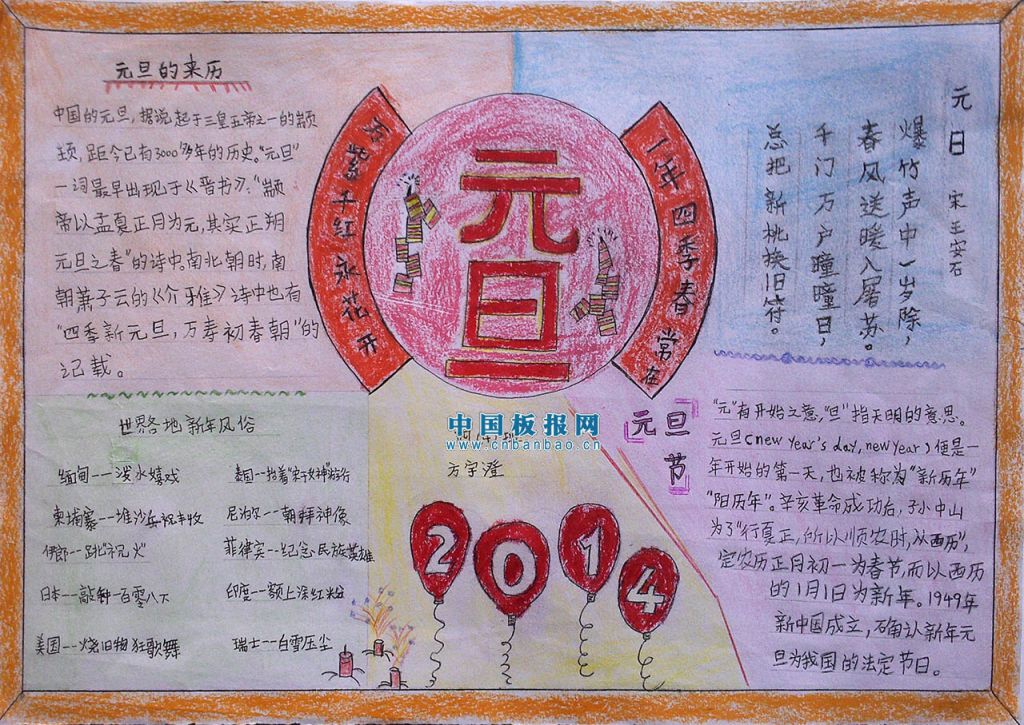 元旦的来历
中国的元旦，据说起于三皇五帝之一的颛顼
顼，距今已有3000多年的历史。“元旦”
一词最早出现于《晋书》：“颛
帝以孟夏正月为元，其实正朔
元旦之春”的诗中。南北朝时，南
朝萧子云的《介雅》诗中也有
“四季新元旦，万寿初春朝”的
记载。
万紫千红永花开
元旦
一年四季春常在
元日
宋 王安石
爆竹声中一岁除，
春风送暖入屠苏。
千门万户曈曈日，
总把新桃换旧符。
世界各地新年风俗
缅甸--泼水嬉戏
柬埔寨--堆沙丘祝丰收
伊朗--跳“祝火”
日本--敲钟一百零八下
美国--烧旧物狂歌舞
尼泊尔--朝拜神像
菲律宾--纪念民族英雄
印度--额上深红粉
瑞士--白雪压尘
中国板报网
www.cnbanbao.cn
方宇澄
2014
元旦节
“元”有开始之意，“旦”指天明的意思。
元旦（new year's day, new year）便是一
年开始的第一天，也被称为“新历年”
“阳历年”。辛亥革命成功后，孙小中山
为了“行夏正，所以顺农时，从西历”，
定农历正月初一为春节，而以西历
的1月1日为新年。1949年
新中国成立，确认新年元
旦为我国的法定节日。